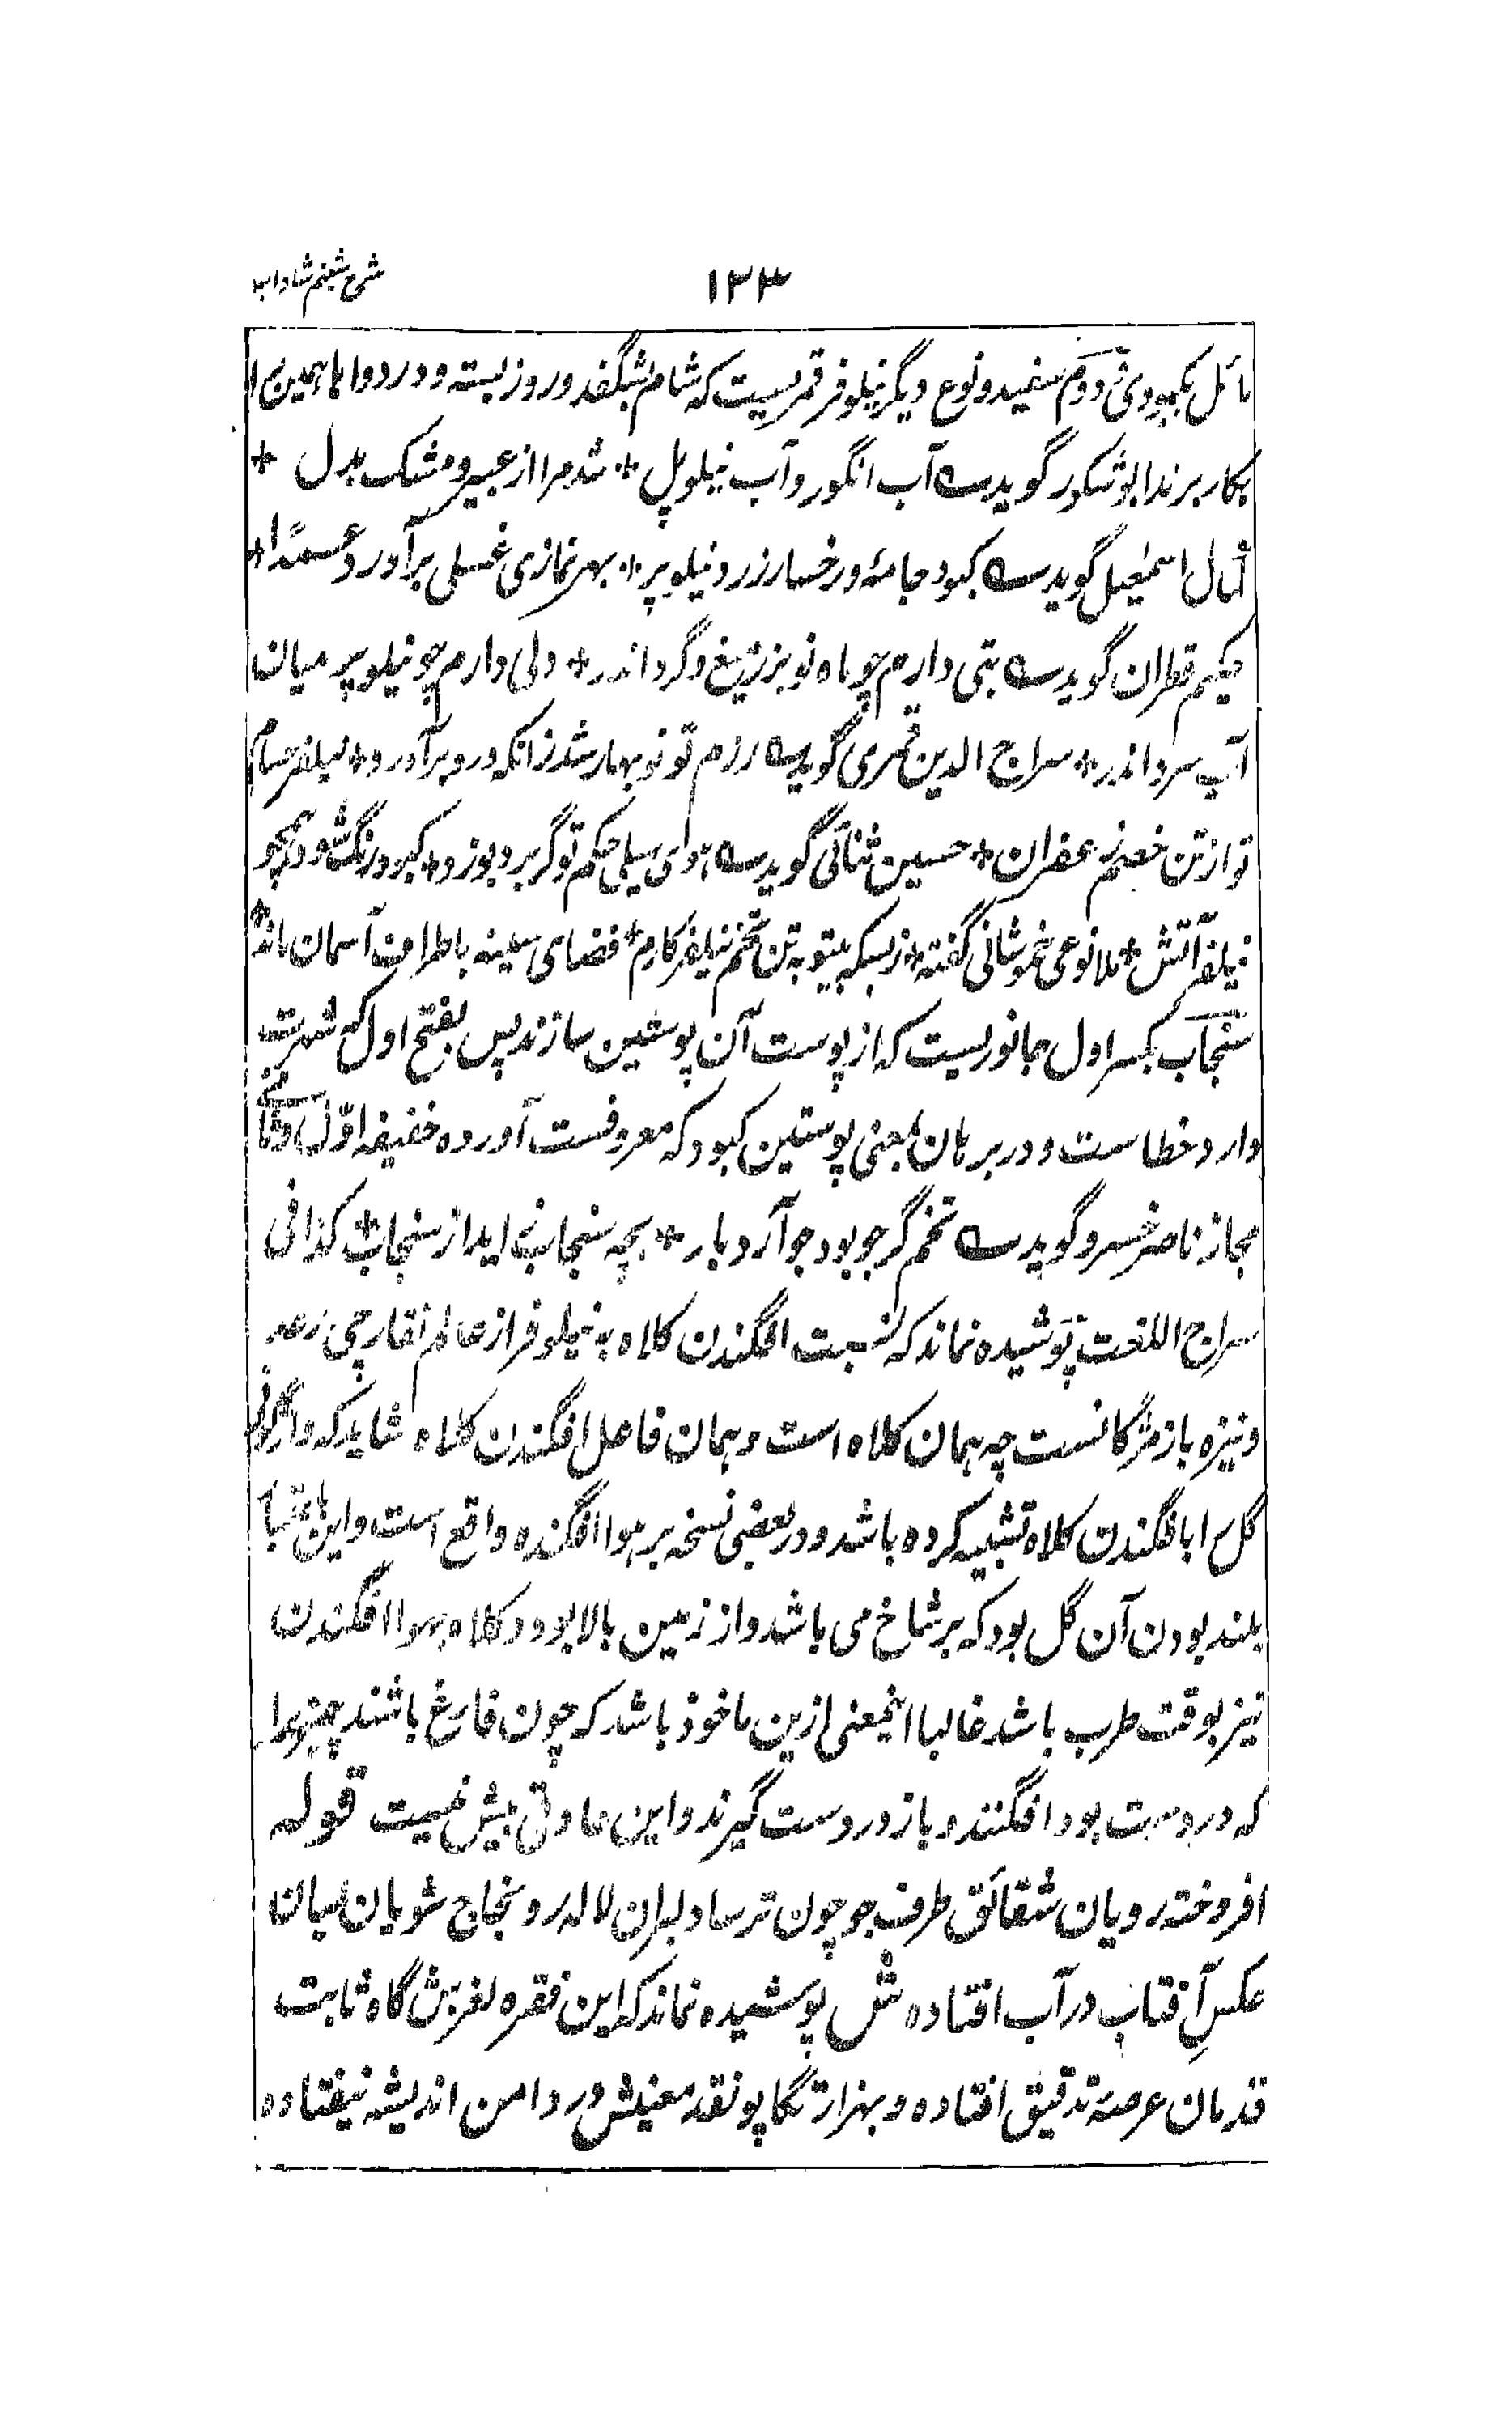 شرح شبنم شاداب
۱۲۳
مائل بکبودی دوم سفید و نوع دیگر نیلوفر قمریست که شام شبگفد و روز بسته و در دواها همین را
بکار برند ابو شکور گوید ؎ آب انگور و آب نیلوپل * شد مرا از عبیر و مشک بدل *
کمال اسمٰعیل گوید ؎ کبود جامه و رخسار زرد نیلوپر * بهر نمازی غسلی برآورد عمدًا *
حکیم قطران گوید ؎ بتی دارم چو ماه نو بزیر میغ و گرد اندر * دلی دارم چو نیلوپر میان
آب سرد اندر * سراج الدین قمری گوید ؎ رزم تو نوبهار شد زانکه درو برآورد * نیلفر حسام
تو از تن خصم زعفران * حسین ثنائی گوید ؎ هوای سیلی حکم تو گر برو بوزد * کبود رنگ شود همچو
نیلفر آتش * ملا نوعی خبوشانی گفته * زبسکه بیتو به تن تخم نیلفر کارم * فضای سینه باطراف آسمان ماند *
سنجاب بکسر اول جانوریست که از پوست آن پوستین سازند پس بفتح اول که شهرت
دارد خطاست و در برهان بمعنی پوستین کبود که معروفست آورده حقیقه اوّل و ثانی
مجاز ناصر خسرو گوید ؎ تخم گر جو بود جو آرد بار * بچه سنجاب زاید از سنجاب * کذا فی
سراج اللغت پوشیده نماند که نسبت افگندن کلاه به نیلوفر از عالم نقارچی رعد
و نیزه باز مژگانست چه همان کلاه است و همان فاعل افگندن کلاه شاید که واژگونی
گل را بافگندن کلاه تشبیه کرده باشد و در بعضی نسخه بر هوا افگنده واقع است و این باعتبار
بلند بودن آن گل بود که بر شاخ می باشد و از زمین بالا بود و کلاه بهوا افگندن
نیز بوقت طرب باشد غالبا اینمعنی ازین ماخوذ باشد که چون فارغ باشند چیزیرا
که در دست بود افگنند و باز در دست گیرند و این عادتی بیش نیست قوله
افروخته رویان شقائق طرف جو چون ترسا دلبران لاله رو بخاج شویان لبان
عکس آفتاب در آب افتاده ش پوشیده نماند که این فقره لغزش گاه ثابت
قدمان عرصهٔ تدقیق افتاده و بهزار تگاپو نقد معنیش در دامن اندیشه نیفتاده